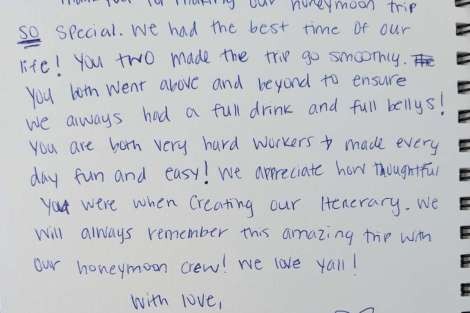 Thank you for making our honeymoon trip
SO special. We had the best time of our
life! You two made the trip go smoothly. The
You both went above and beyond to ensure
we always had a full drink and full bellys!
You are both very hard workers & made every
day fun and easy! We appreciate how thoughtful
you were when creating our Itenerary. We
will always remember this amazing trip with
our honeymoon crew! We love yall!
With love,